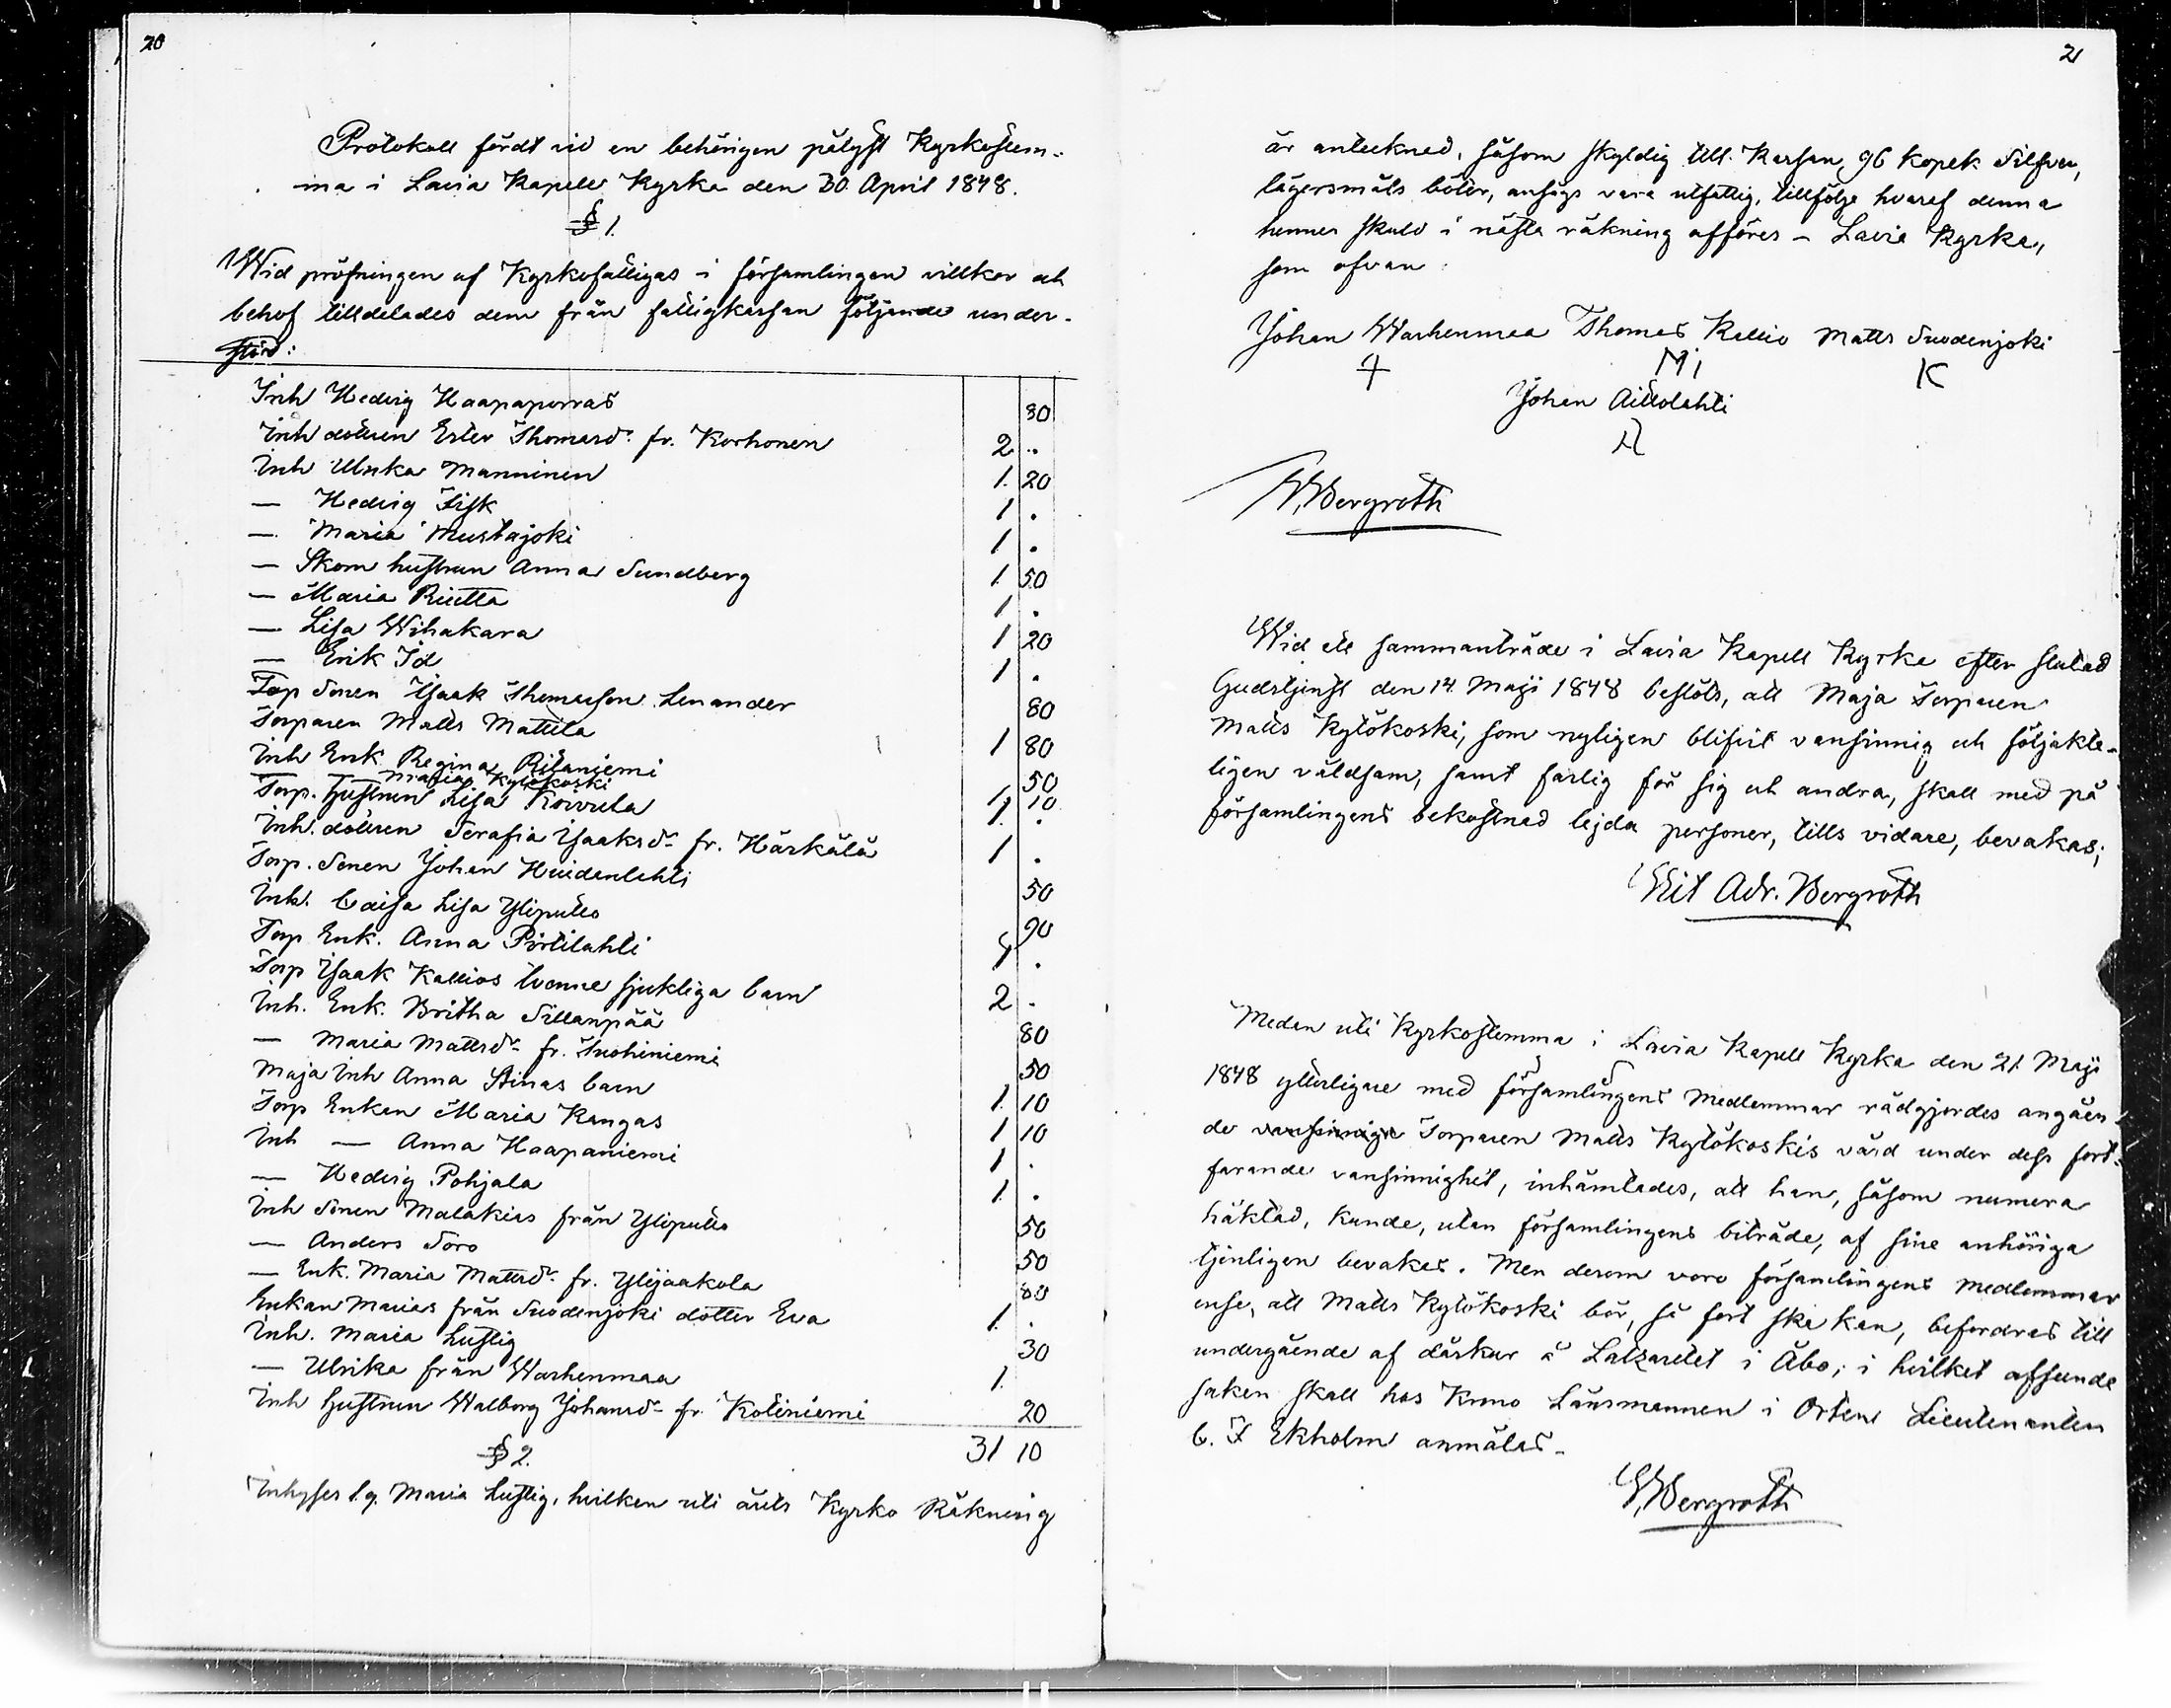 20
Protokoll fördt vid en behörigen pålyst Kyrkostem-
ma i Lavia Kapell Kyrka den 30. April 1848.
§ 1.
Wid pröfningen af Kyrkofattigas i församlingen villkor och
behof tilldelades dem från fattigkassan följande under-
stöd:
Inh Hedvig Haapaporras 80
Inh dottren Ester Thomasdr fr. Korhonen 2 ..
Inh Ulrika Manninen 1. 20
— Hedvig Fisk 1 .
— Maria Mustajoki 1 .
— Skom hustrun Anna Sundberg 1. 50
— Maria Riutta 1 .
— Lisa Wihakara 1 20
— Erik Id 1 .
Torp Sonen Isaak Thomasson Lenander 80
Torparen Matts Mattila 1 80
Inh Enk Regina Ritaniemi 50
Maria Kylökoski 1 10
Torp. Hustrun Lisa Koivula 1. .
Inh. dottren Serafia Isaksdr fr. Härkälä 1 .
Torp. Sonen Johan Hiidenlehti 50
Inh. Caisa Lisa Yliputeo 90
Torp Enk. Anna Pirttilahti 1 .
Torp Isaak Kallios tvenne sjukliga barn 2 .
Inh. Enk. Britha Sillanpää 80
— Maria Mattsdr fr. Suoniemi 50
Maja Inh Anna Stinas barn 1. 10
Torp Enkan Maria Kangas 1 10
Inh — Anna Haapaniemi 1 .
— Hedvig Pohjala 1. .
Inh Sonen Malakias från Yliputeo 50
— Anders Soro 50
— Enk. Maria Mattsdr fr. Ylijaakola 80
Enkan Marias från Suodenjoki dotter Eva 1. .
Inh. Maria Lustig 30
— Ulrika från Warhenmaa 1.
Inh Hustrun Walborg Johansdr fr. Kotiniemi 20
31 10
§ 2.
Inhyses l.q. Maria Lustig, hvilken uti årets Kyrko Räkning
21
är antecknad, såsom skyldig till Kassan 96 kopek Silfver,
lägersmåls böter, ansågs vara utfattig, tillfölje hvaraf denna
hennes skuld i nästa räkning afföres – Lavia Kyrka,
som ofvan:
Johan Warhenmaa Thomas Kallio Matts Suodenjoki
Johan Aittolahti
W. Bergroth
Wid ett sammanträde i Lavia Kapell Kyrka efter slutad
Gudstjenst den 14. Maji 1848 beslöts, att Maja Torparen
Matts Kylökoski, som nyligen blifvit vansinnig och följakte-
ligen våldsam, samt farlig för sig och andra, skall med på
församlingens bekostnad lejda personer, tills vidare, bevakas;
Adr. Bergroth
Medan uti Kyrkostemma i Lavia Kapell Kyrka den 21. Maji
1848 ytterligare med församlingens Medlemmar rådgjordes angåen-
de vansinnige Torparen Matts Kylökoskis vård under dess fort-
farande vansinnighet, inhämtades, att han, såsom numera
häktad, kunde, utan församlingens biträde, af sine anhöriga
tjenligen bevakas. Men derom voro församlingens medlemmar
ense, att Matts Kylökoski bör, så fort ske kan, befordras till
undergående af dårkur å Latzarettet i Åbo; i hvilket afseende
saken skall hos Krono Länsmannen i Orten Lieutenanten
C. F Ekholm anmälas.
W. Bergroth